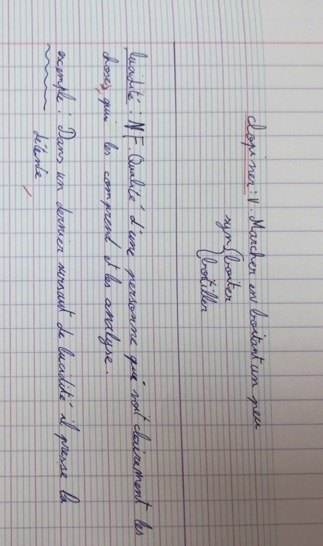 clopiner : V. Marcher en boitant un peu
syn { boiter
boitiller
lucidité : NF. Qualité d'une personne qui voit clairement les
choses, qui les comprend et les analyse.
exemple : Dans un dernier sursaut de lucidité il presse la
détente